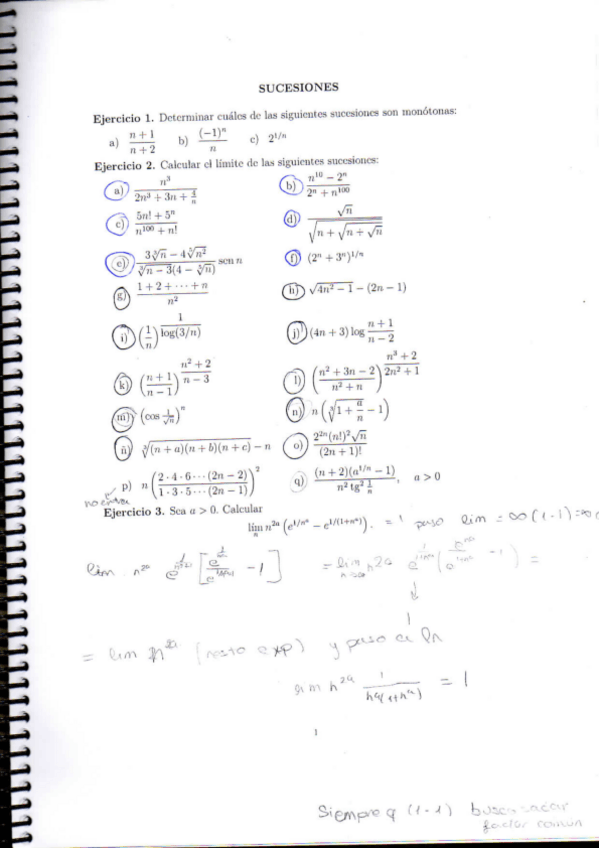 SUCESIONES
Ejercicio 1. Determinar cuáles de las siguientes sucesiones son monótonas:
a) \frac{n+1}{n+2} b) \frac{(-1)^n}{n} c) 2^{1/n}
Ejercicio 2. Calcular el límite de las siguientes sucesiones:
a) \frac{n^3}{2n^3+3n+\frac{4}{n}} b) \frac{n^{10}-2^n}{2^n+n^{100}}
c) \frac{5n!+5^n}{n^{100}+n!} d) \frac{\sqrt{n}}{\sqrt{n+\sqrt{n+\sqrt{n}}}}
e) \frac{3\sqrt[3]{n}-4\sqrt[5]{n^2}}{\sqrt[3]{n-3}(4-\sqrt[5]{n})} sen n f) (2^n+3^n)^{1/n}
g) \frac{1+2+\cdots+n}{n^2} h) \sqrt{4n^2-1}-(2n-1)
i) \left(\frac{1}{n}\right)^{\frac{1}{\log(3/n)}} j) (4n+3)\log\frac{n+1}{n-2}
k) \left(\frac{n+1}{n-1}\right)^{\frac{n^2+2}{n-3}} l) \left(\frac{n^2+3n-2}{n^2+n}\right)^{\frac{n^3+2}{2n^2+1}}
m) \left(\cos\frac{1}{\sqrt{n}}\right)^n n) n\left(\sqrt[3]{1+\frac{a}{n}}-1\right)
ñ) \sqrt[3]{(n+a)(n+b)(n+c)}-n o) \frac{2^{2n}(n!)^2\sqrt{n}}{(2n+1)!}
no entra p) n\left(\frac{2\cdot4\cdot6\cdots(2n-2)}{1\cdot3\cdot5\cdots(2n-1)}\right)^2 q) \frac{(n+2)(a^{1/n}-1)}{n^2 tg^2\frac{1}{n}}, a>0
Ejercicio 3. Sea a > 0. Calcular
lím_n n^{2a}(e^{1/n^a}-e^{1/(1+n^a)}). = 1 paso lim = ∞(1-1)=∞
lim n^{2a} e [ -1 ] = lim n^{2a} e ( -1 ) =
1
= lim n^{2a} (resto exp) y paso a ln
lim n^{2a} \frac{1}{n^a(1+n^a)} = 1
1
Siempre q (1-1) sacar
factor comun